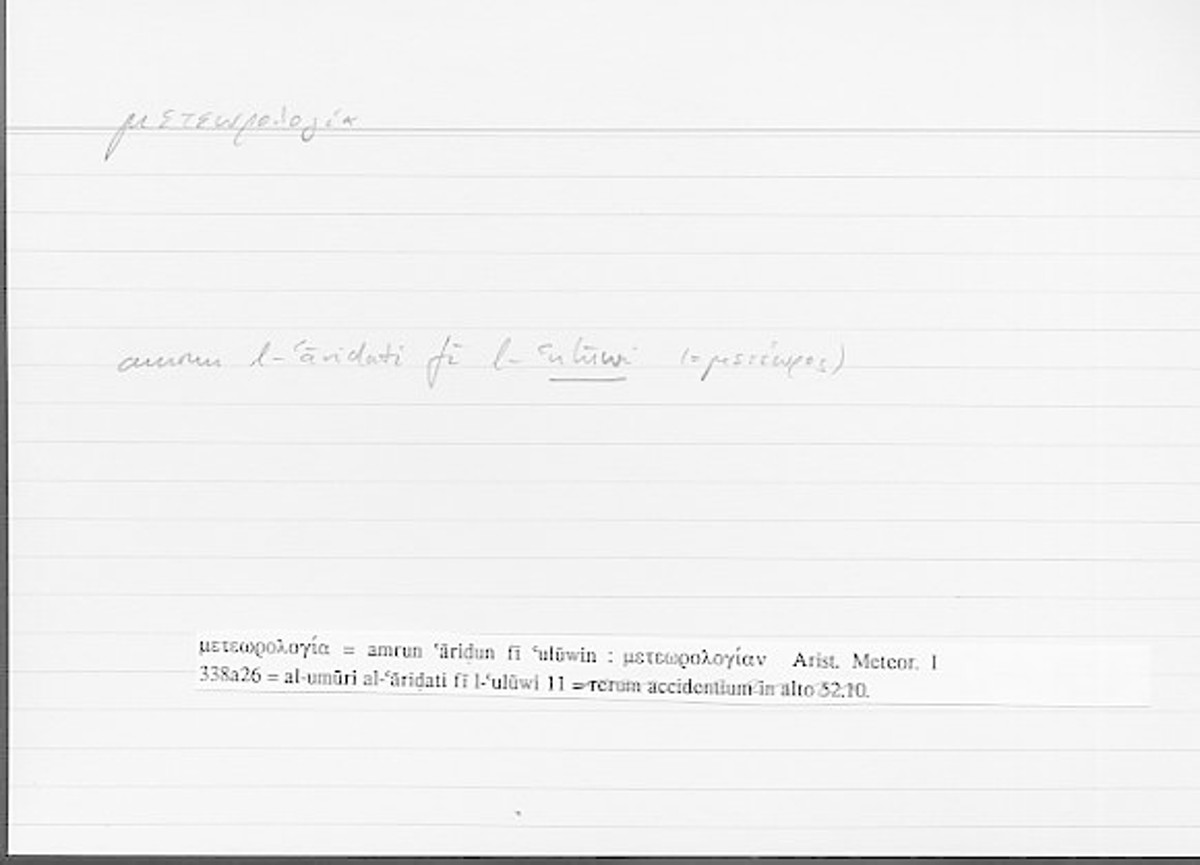 μετεωρολογία
amrun l-ʿāridati fī l-ʿulūwi (= μετέωρος)
μετεωρολογία = amrun ʿāriḍun fī ʿulūwin : μετεωρολογίαν Arist. Meteor. I
338a26 = al-umūri al-ʿāriḍati fī l-ʿulūwi 11 = rerum accidentium in alto 52.10.